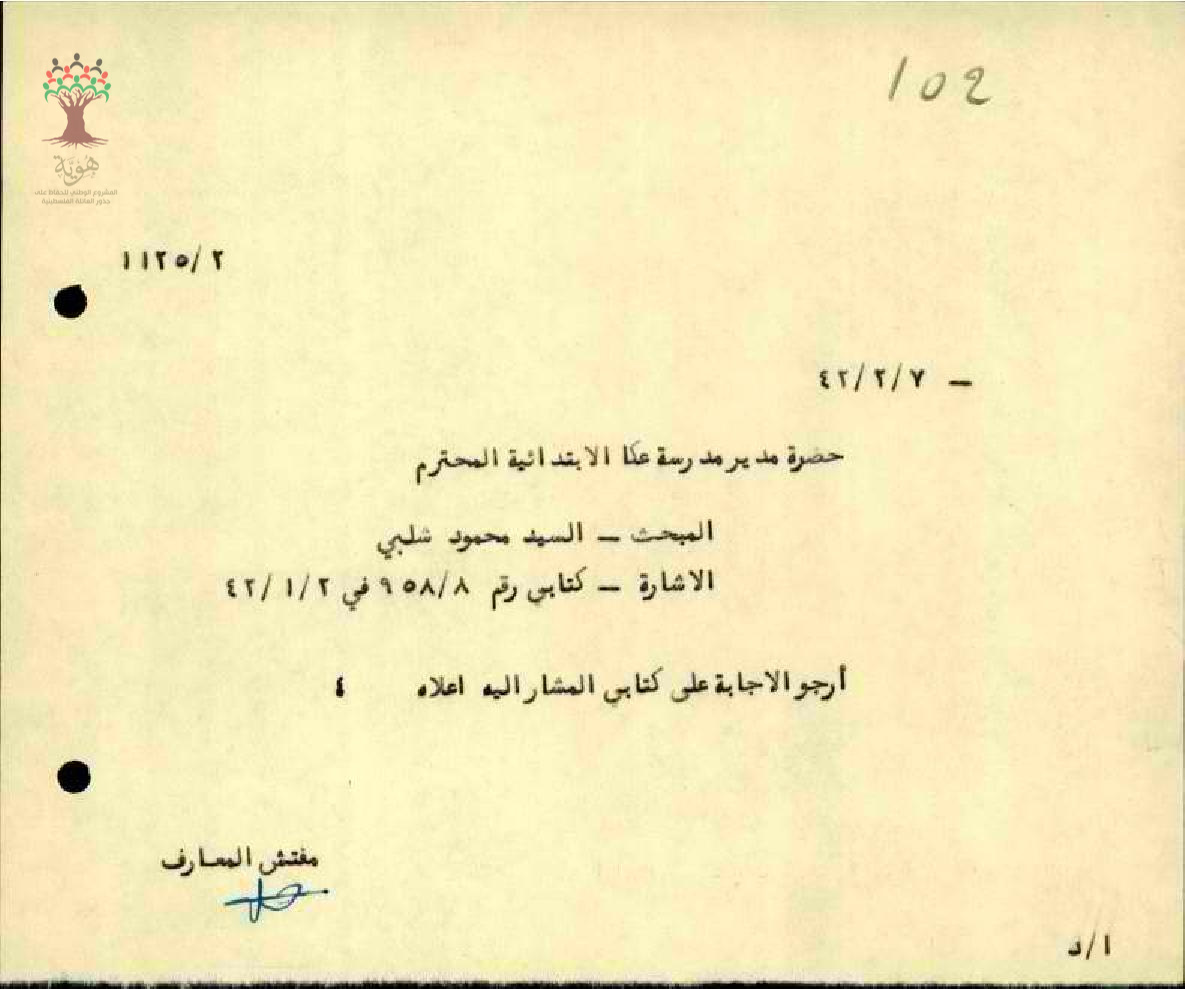 102
هوية
المشروع الوطني للحفاظ على
جذور العائلة الفلسطينية
١١٢٥/٢
— ٤٢/٢/٧
حضرة مدير مدرسة عكا الابتدائية المحترم
المبحث — السيد محمود شلبي
الاشارة — كتابي رقم ٩٥٨/٨ في ٤٢/١/٢
أرجو الاجابة على كتابي المشار اليه اعلاه ٤
مفتش المعارف
ا/د